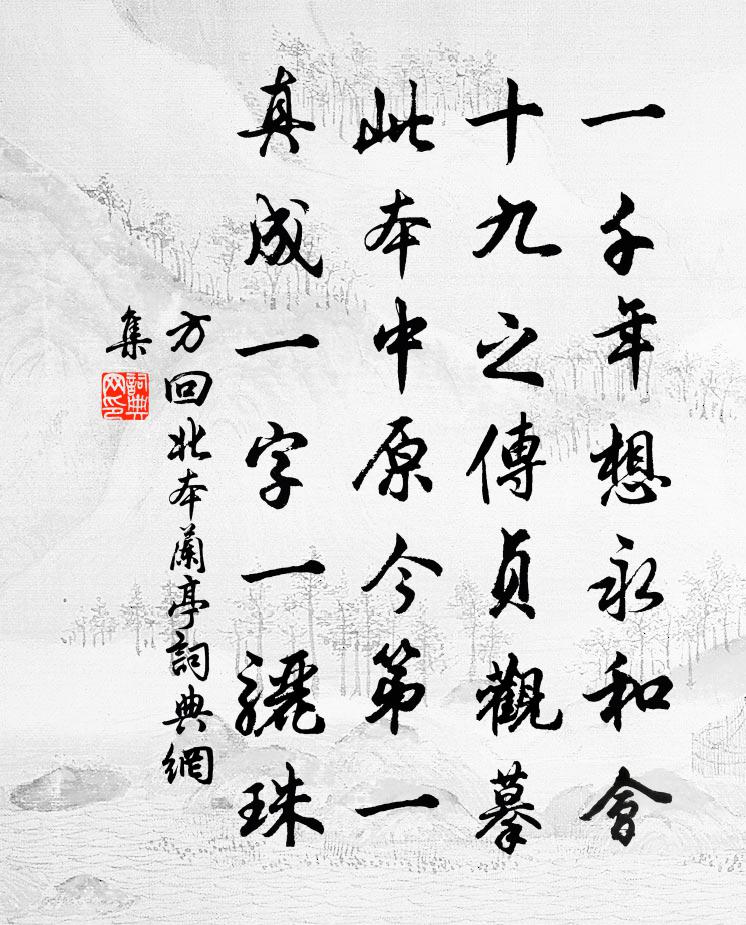 一千年想永和會
十九之傳貞觀摹
此本中原今第一
真成一字一驪珠
方回北本蘭亭詞典網
集
詞典
网印